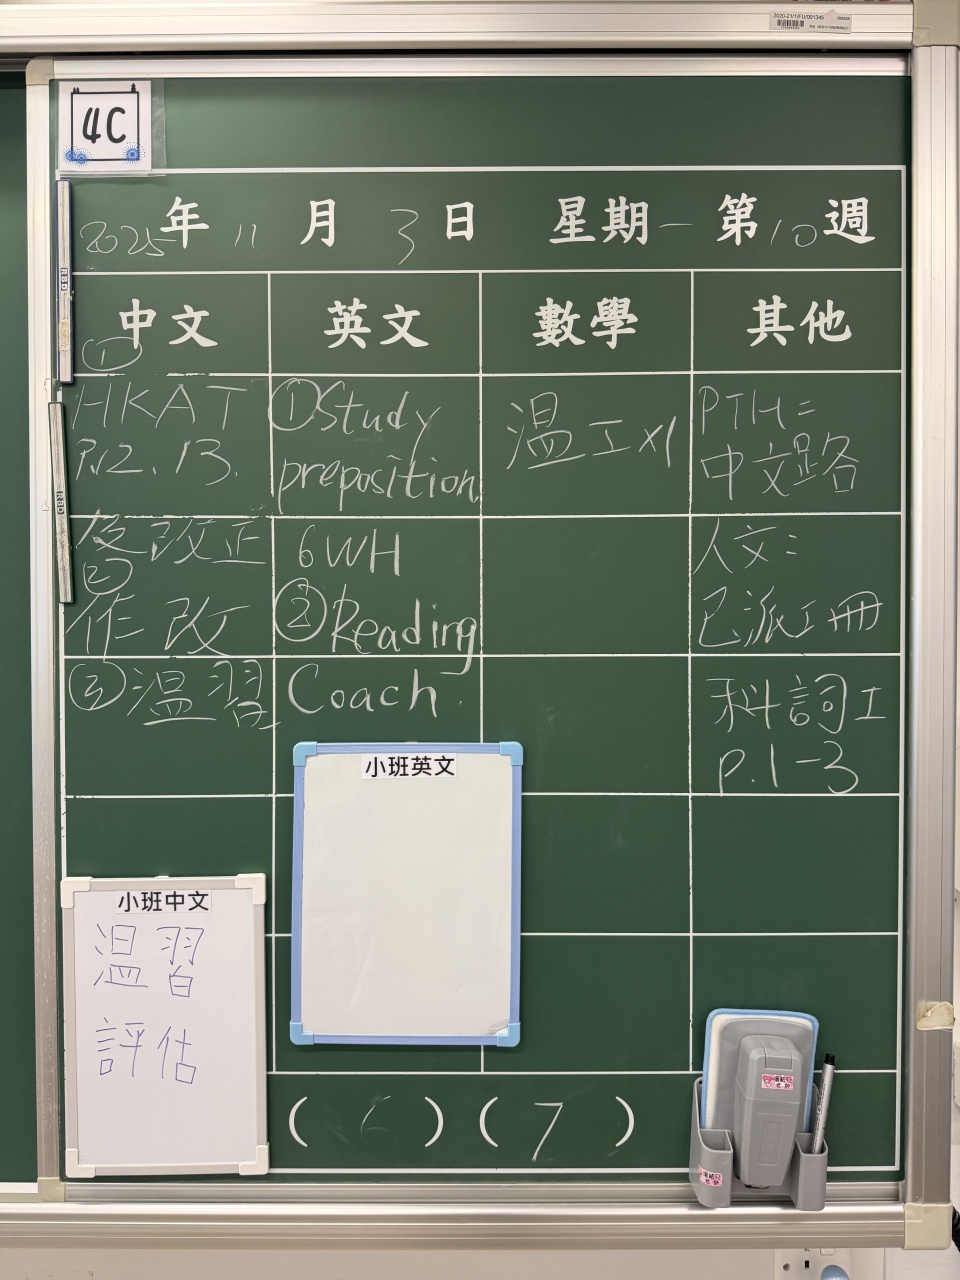 2020-21/1/FU/001345
4C
2025年 11 月 3 日 星期一 第10週
中文 英文 數學 其他
①
HKAT
P.12. 13.
及改正
②
作改
③溫習
①Study
preposition
6WH
②Reading
Coach.
溫工x1
PTH=
中文路
人文:
已派工冊
科詞工
p.1-3
小班英文
小班中文
溫習
評估
( 6 ) ( 7 )